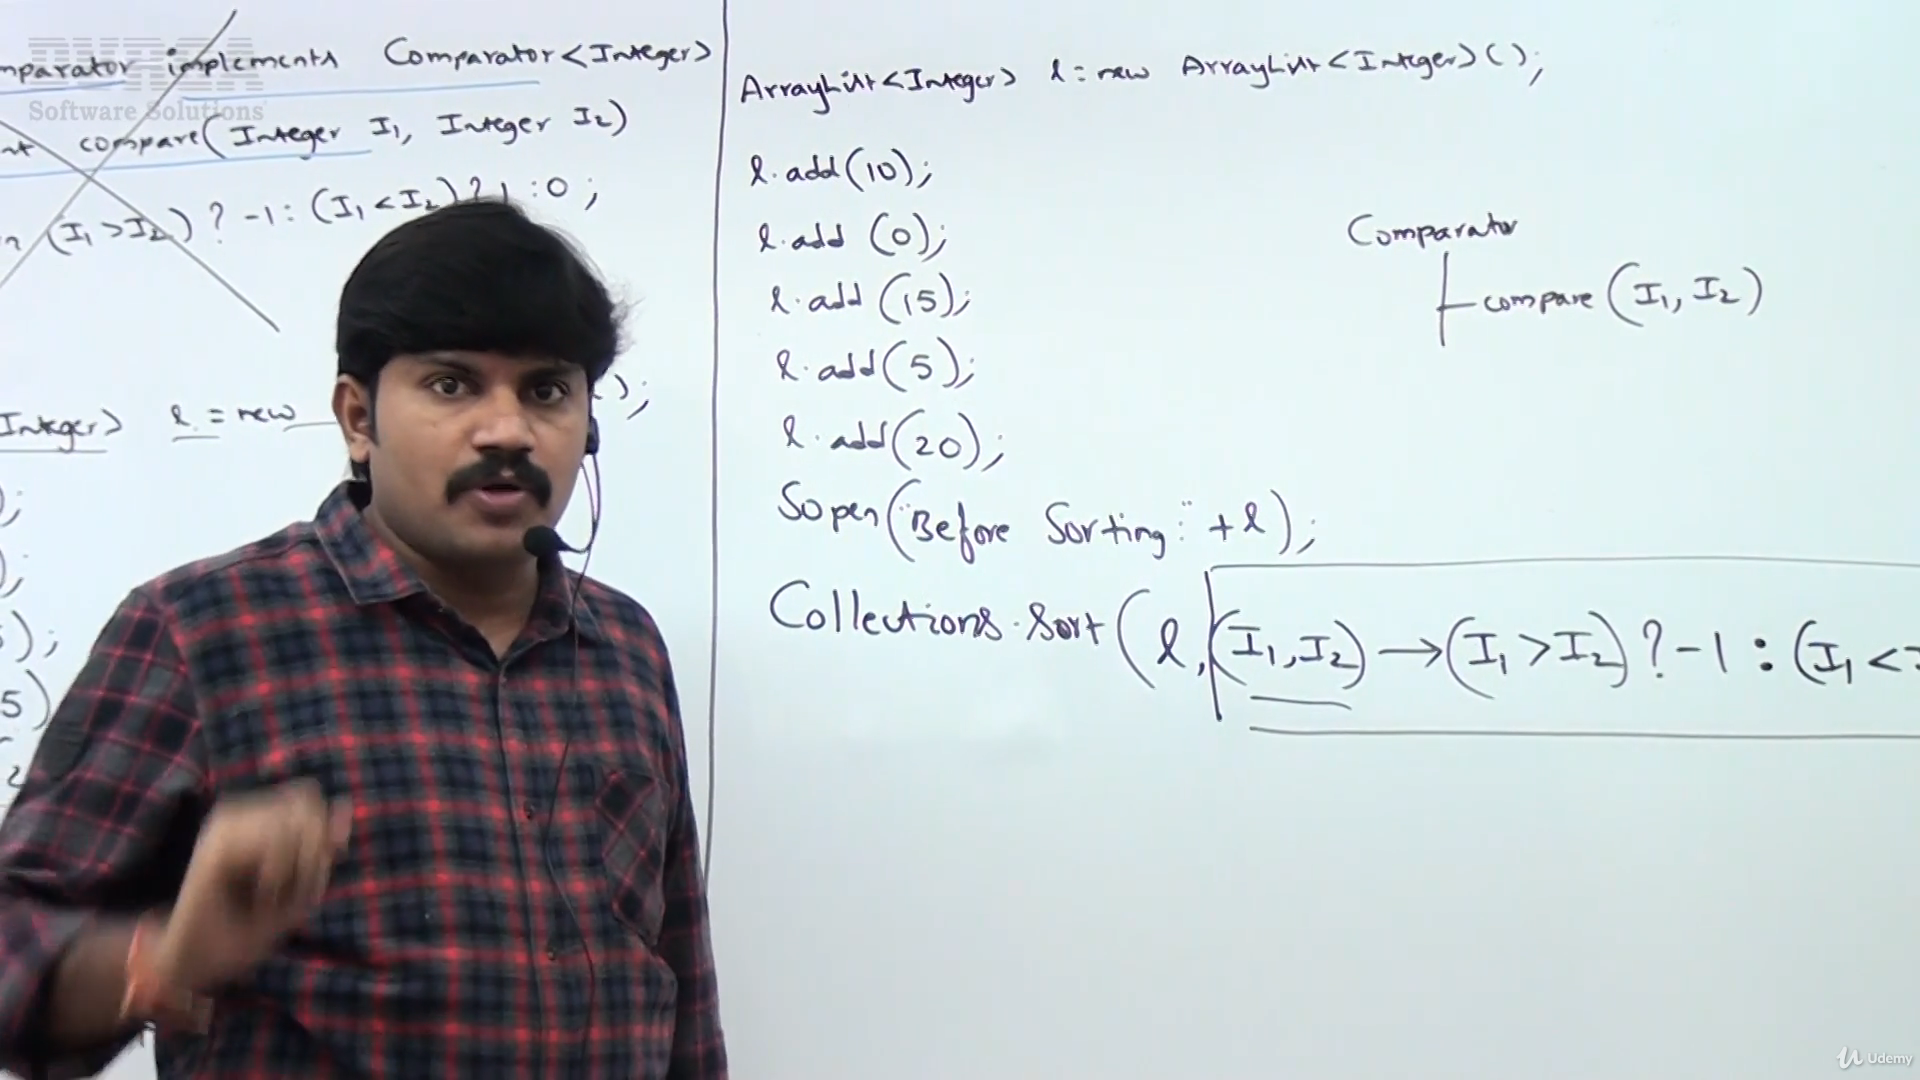 DURGA
Software Solutions
mparator implements Comparator<Integer>
nt compare(Integer I1, Integer I2)
n (I1>I2) ? -1 : (I1<I2) ? 1 : 0 ;
Integer> l = new ( );
);
);
5);
5)
2
ArrayList<Integer> l = new ArrayList<Integer>();
l.add(10);
l.add (0);
l.add (15);
l.add(5);
l.add(20);
Sopln("Before Sorting:" + l);
Collections.sort(l, (I1, I2) → (I1 > I2) ? -1 : (I1 <
Comparator
compare (I1, I2)
Udemy